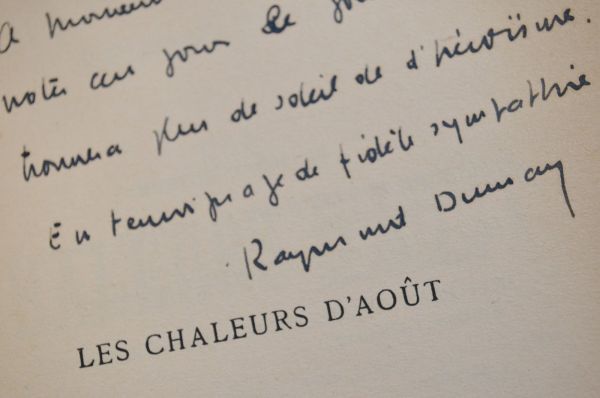 A Monsieur
notés ces jours de
trouvera plus de soleil que d'héroïsme.
En témoignage de fidèle sympathie
Raymond Dumay
LES CHALEURS D'AOÛT